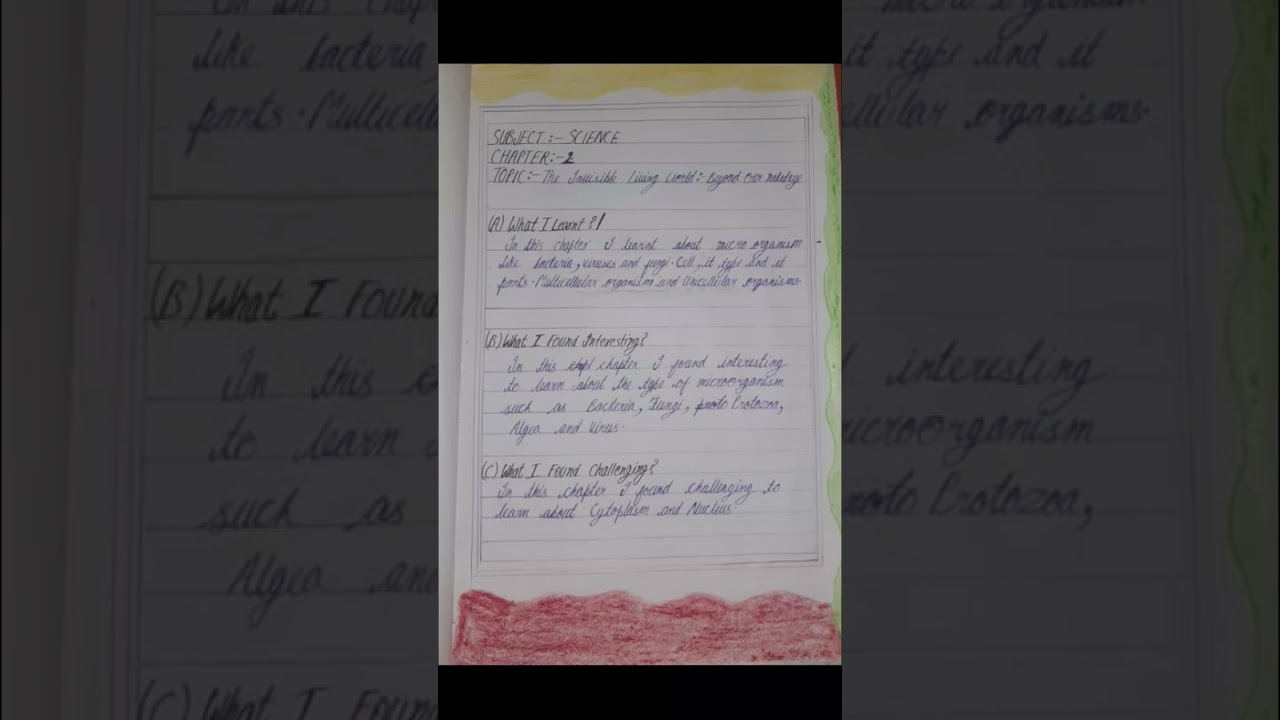 SUBJECT :- SCIENCE
CHAPTER:-2
TOPIC:- The Invisible Living World:- Beyond Our nakedeye
(A) What I Learnt ?
In this chapter I learnt about micro organism
like bacteria, viruses and fungi. Cell, it type and it
parts. Multicellular organism and Unicellular organisms.
(B) What I Found Interesting?
In this chapter I found interesting
to learn about the type of microorganism
such as Bacteria, Fungi, Protozoa,
Algea and Virus.
(C) What I Found Challenging?
In this chapter I found challenging to
learn about Cytoplasm and Nucleus.